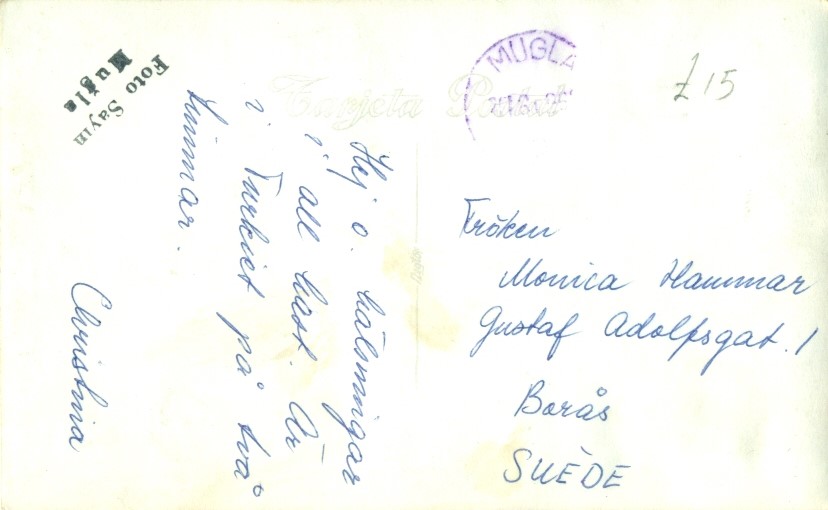 Foto Sayın
Muğla
MUGLA
£15
Tarjeta Postal
Hej o. hälsningar
i all hast. Är
i Turkiet på två
timmar.
Christina
Fröken
Monica Hammar
Gustaf Adolfsgat. 1
Borås
SUÈDE